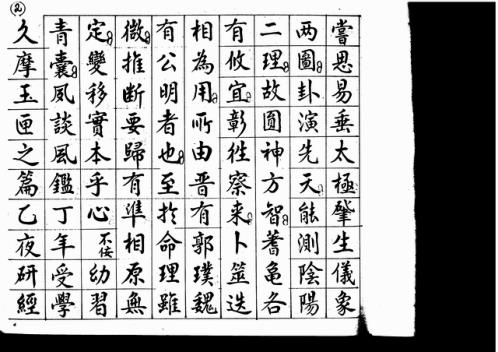 (2)
嘗思易垂太極肇生儀象
两圖卦演先天能測陰陽
二理故圓神方智蓍龜各
有攸宜彰往察来卜筮迭
相為用所由晋有郭璞魏
有公明者也至於命理雖
微推断要歸有準相原無
定變移實本乎心不佞幼習
青囊夙談風鑑丁年受學
久摩玉匣之篇乙夜研經